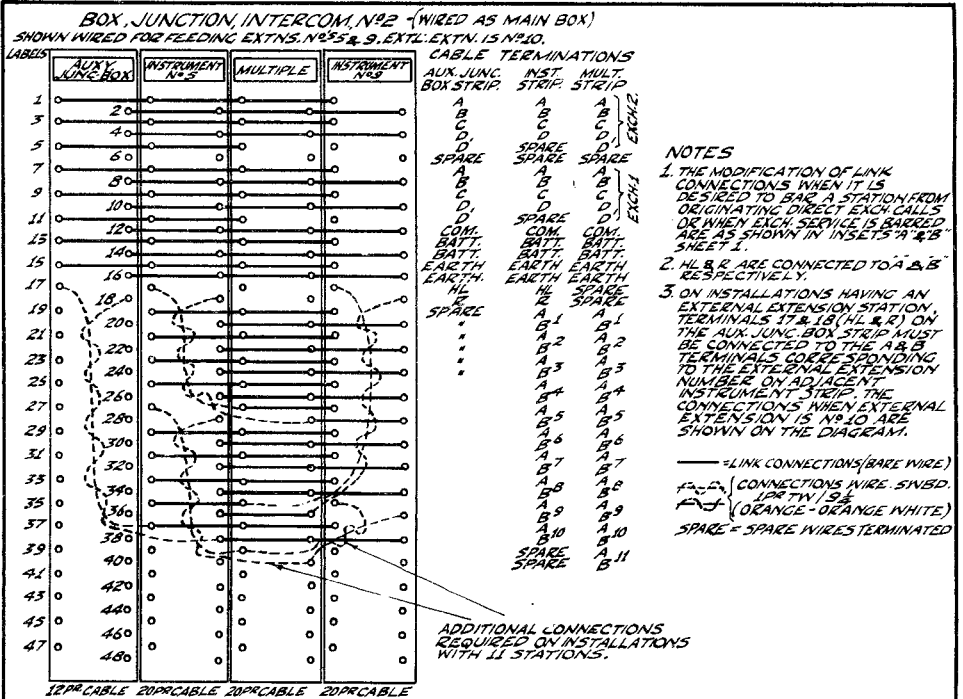 BOX, JUNCTION, INTERCOM, Nº2 -(WIRED AS MAIN BOX)
SHOWN WIRED FOR FEEDING EXTNS. Nº5 5 & 9. EXTL. EXTN. IS Nº10.
LABELS
AUXY. JUNC. BOX
INSTRUMENT Nº5
MULTIPLE
INSTRUMENT Nº9
1
2
3
4
5
6
7
8
9
10
11
12
13
14
15
16
17
18
19
20
21
22
23
24
25
26
27
28
29
30
31
32
33
34
35
36
37
38
39
40
41
42
43
44
45
46
47
48
12PR CABLE 20PR CABLE 20PR CABLE 20PR CABLE
CABLE TERMINATIONS
AUX. JUNC. INST. MULT.
BOX STRIP. STRIP. STRIP
A A A
B B B
C C C
D, D, D,
D SPARE D
SPARE SPARE SPARE
EXCH. 2.
A A A
B B B
C C C
D, D, D,
D SPARE D
EXCH. 1
COM. COM. COM.
BATT. BATT. BATT.
BATT. BATT. BATT.
EARTH EARTH EARTH
EARTH EARTH EARTH
HL HL SPARE
R R SPARE
SPARE A A
" B1 B1
" A A
" B2 B2
" A A
" B3 B3
A A
B4 B4
A A
B5 B5
A A
B6 B6
A A
B7 B7
A A
B8 B8
A A
B9 B9
A A
B10 B10
SPARE A
SPARE B11
ADDITIONAL CONNECTIONS
REQUIRED ON INSTALLATIONS
WITH 11 STATIONS.
NOTES
1. THE MODIFICATION OF LINK
CONNECTIONS WHEN IT IS
DESIRED TO BAR A STATION FROM
ORIGINATING DIRECT EXCH. CALLS
OR WHEN EXCH. SERVICE IS BARRED
ARE AS SHOWN IN INSETS "A" & "B"
SHEET 1.
2. HL & R ARE CONNECTED TO "A" & "B"
RESPECTIVELY.
3. ON INSTALLATIONS HAVING AN
EXTERNAL EXTENSION STATION,
TERMINALS 17 & 18 (HL & R) ON
THE AUX. JUNC. BOX STRIP MUST
BE CONNECTED TO THE A & B
TERMINALS CORRESPONDING
TO THE EXTERNAL EXTENSION
NUMBER ON ADJACENT
INSTRUMENT STRIP. THE
CONNECTIONS WHEN EXTERNAL
EXTENSION IS Nº10 ARE
SHOWN ON THE DIAGRAM.
=LINK CONNECTIONS (BARE WIRE)
CONNECTIONS WIRE. SWBD.
1PR TW/9½
(ORANGE-ORANGE WHITE)
SPARE = SPARE WIRES TERMINATED